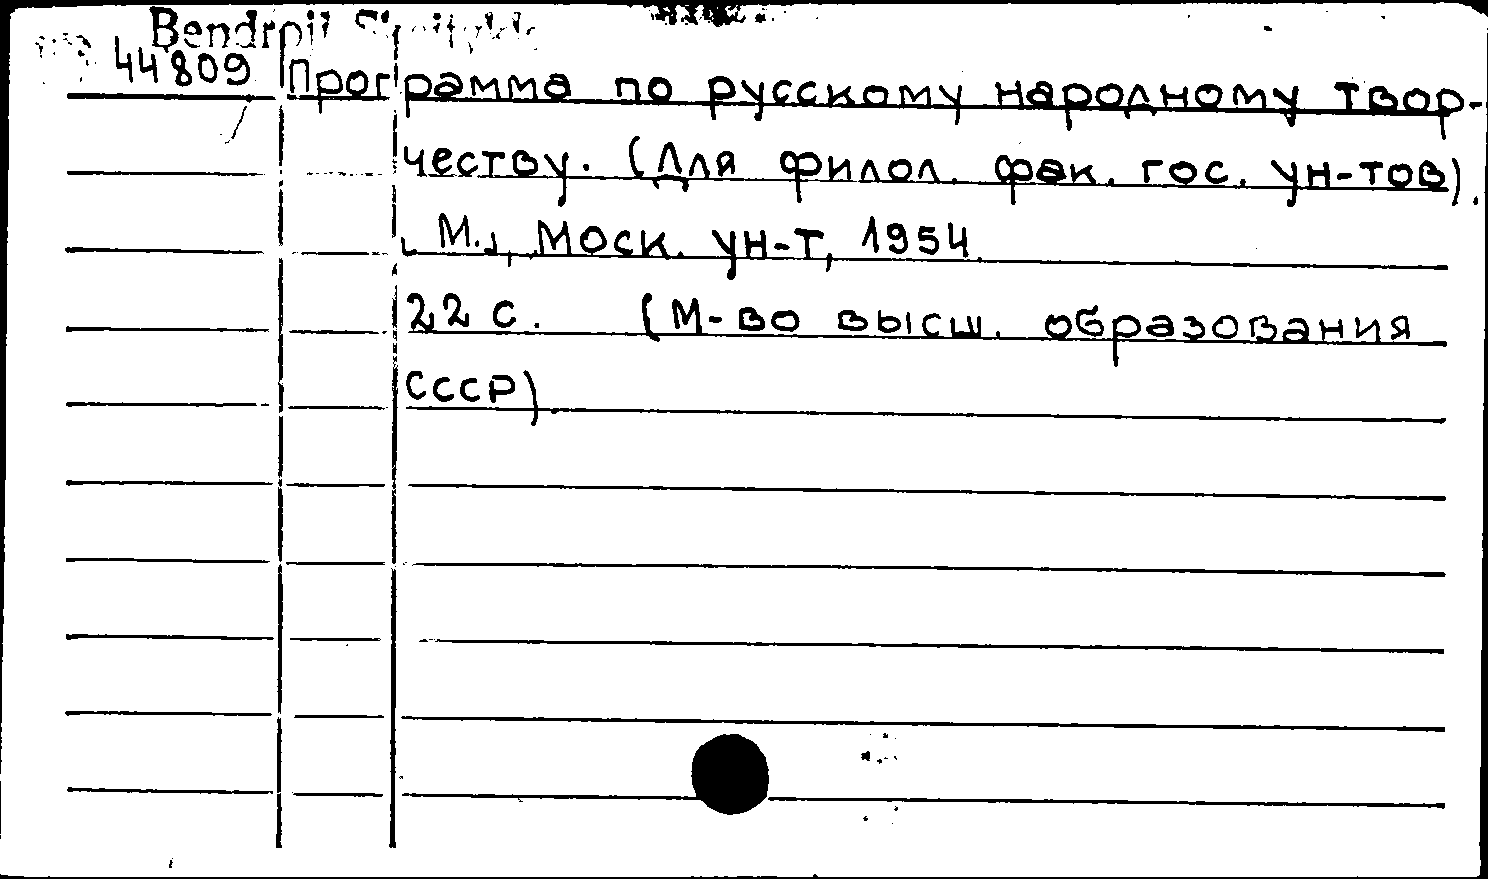 Bendroji
44809 Программа по русскому народному твор-
честву. (Для филол. фак. гос. ун-тов).
[М.], Моск. ун-т, 1954.
22 с. (М-во высш. образования
СССР)